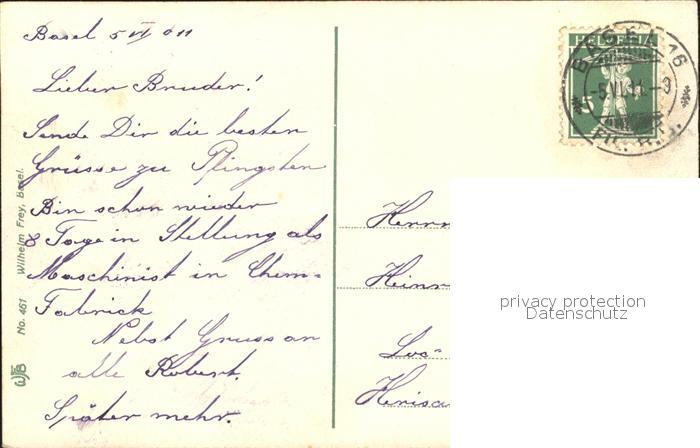 Basel 5 VI 011
Lieber Bruder!
Sende Dir die besten
Grüsse zu Pfingsten
Bin schon wieder
8 Tage in Stellung als
Maschinist in Chem-
Fabrick
Nebst Gruss an
alle Robert.
Später mehr.
No. 461 Wilhelm Frey, Basel.
HELVETIA
5
BASEL 16
-5.VI.11.-9
Herrn
Heinr
Los-
Herisa
privacy protection
Datenschutz